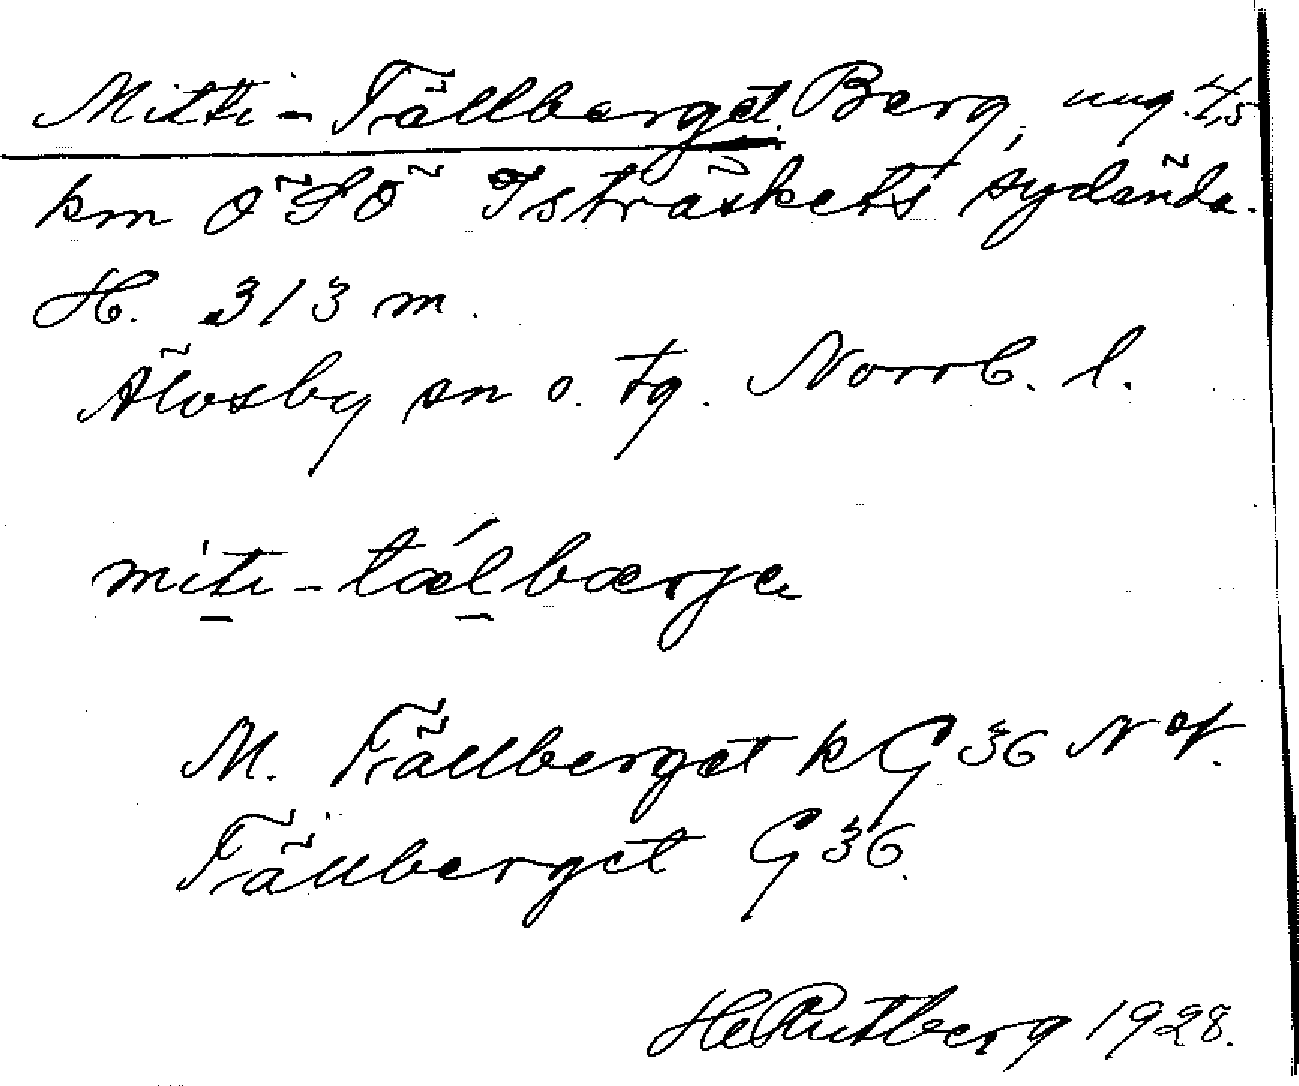 Mitti-Tällberget. Berg, ung. 4,5
km ÖSÖ Isträskets sydända.
H. 313 m.
Älvsby sn o. tg. Norrb. l.
miti-tǽlbærje
M. Tällberget k G 36 N of.
Tällberget G 36.
He Rutberg 1928.